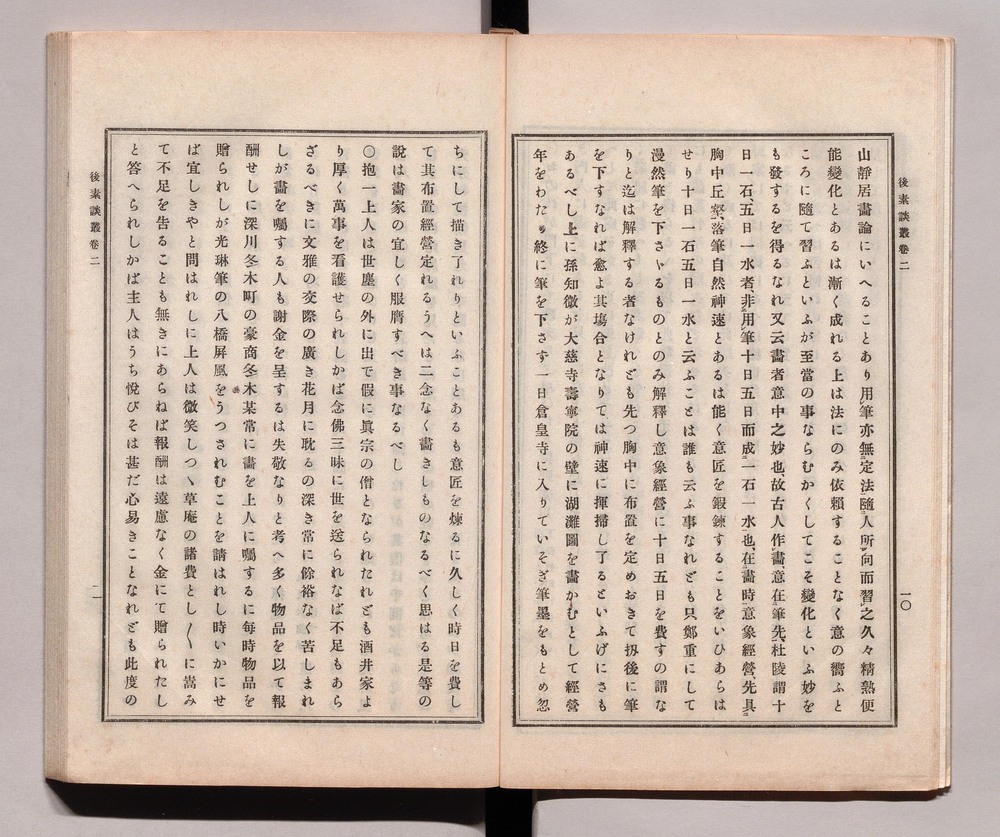 後素談叢卷二
一〇
山靜居畫論にいへることあり用筆亦無定法隨人所向而習之久々精熟便
能變化とあるは漸く成れる上は法にのみ依賴することなく意の嚮ふと
ころに隨て習ふといふが至當の事ならむかくしてこそ變化といふ妙を
も發するを得るなれ又云畫者意中之妙也、故古人作畫、意在筆先、杜陵謂十
日一石、五日一水者、非用筆十日五日而成一石一水也、在畫時意象經營先具
胸中丘壑、落筆自然神速とあるは能く意匠を鍛鍊することをいひあらは
せり十日一石五日一水と云ふことは誰も云ふ事なれども只鄭重にして
漫然筆を下さゝるものとのみ解釋し意象經營に十日五日を費すの謂な
りと迄は解釋する者なけれども先つ胸中に布置を定めおきて扨後に筆
を下すなれば愈よ其塲合となりては神速に揮掃し了るといふげにさも
あるべし上に孫知微が大慈寺壽寧院の壁に湖灘圖を畫かむとして經營
年をわたり終に筆を下さす一日倉皇寺に入りていそぎ筆墨をもとめ忽
ちにして描き了れりといふことあるも意匠を煉るに久しく時日を費し
て其布置經營定れるうへは二念なく畵きしものなるべく思はる是等の
說は畫家の宜しく服膺すべき事なるべし
〇抱一上人は世塵の外に出で假に眞宗の僧となられたれども酒井家よ
り厚く萬事を看護せられしかば念佛三昧に世を送られなば不足もあら
ざるべきに文雅の交際の廣き花月に耽るの深き常に餘裕なく苦しまれ
しが畵を囑する人も謝金を呈するは失敬なりと考へ多く物品を以て報
酬せしに深川冬木町の豪商冬木某常に畫を上人に囑するに每時物品を
贈られしが光琳筆の八橋屏風をうつされむことを請はれし時いかにせ
ば宜しきやと問はれしに上人は微笑しつゝ草庵の諸費とし〳〵に嵩み
て不足を告ることも無きにあらねば報酬は遠慮なく金にて贈られたし
と答へられしかば主人はうち悅びそは甚だ心易きことなれども此度の
後素談叢卷二
一一